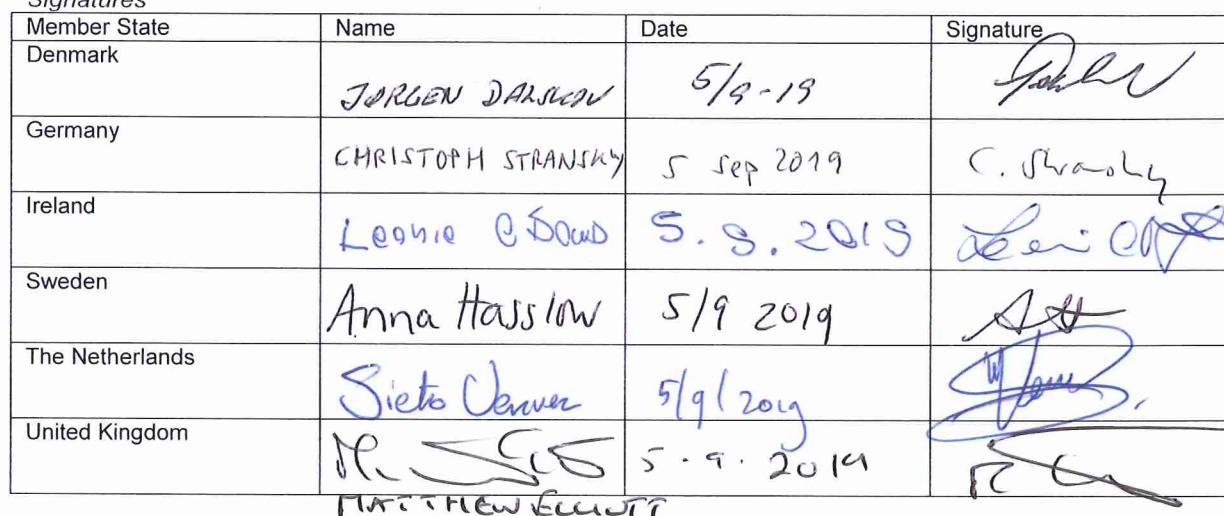 Signatures
Member State Name Date Signature
Denmark JØRGEN DALSKOV 5/9-19
Germany CHRISTOPH STRANSKY 5 Sep 2019 C. Stransky
Ireland Leonie O'Dowd 5.9.2019
Sweden Anna Hasslow 5/9 2019
The Netherlands Sieto Verver 5/9/2019
United Kingdom 5.9.2019
MATTHEW ELLIOTT